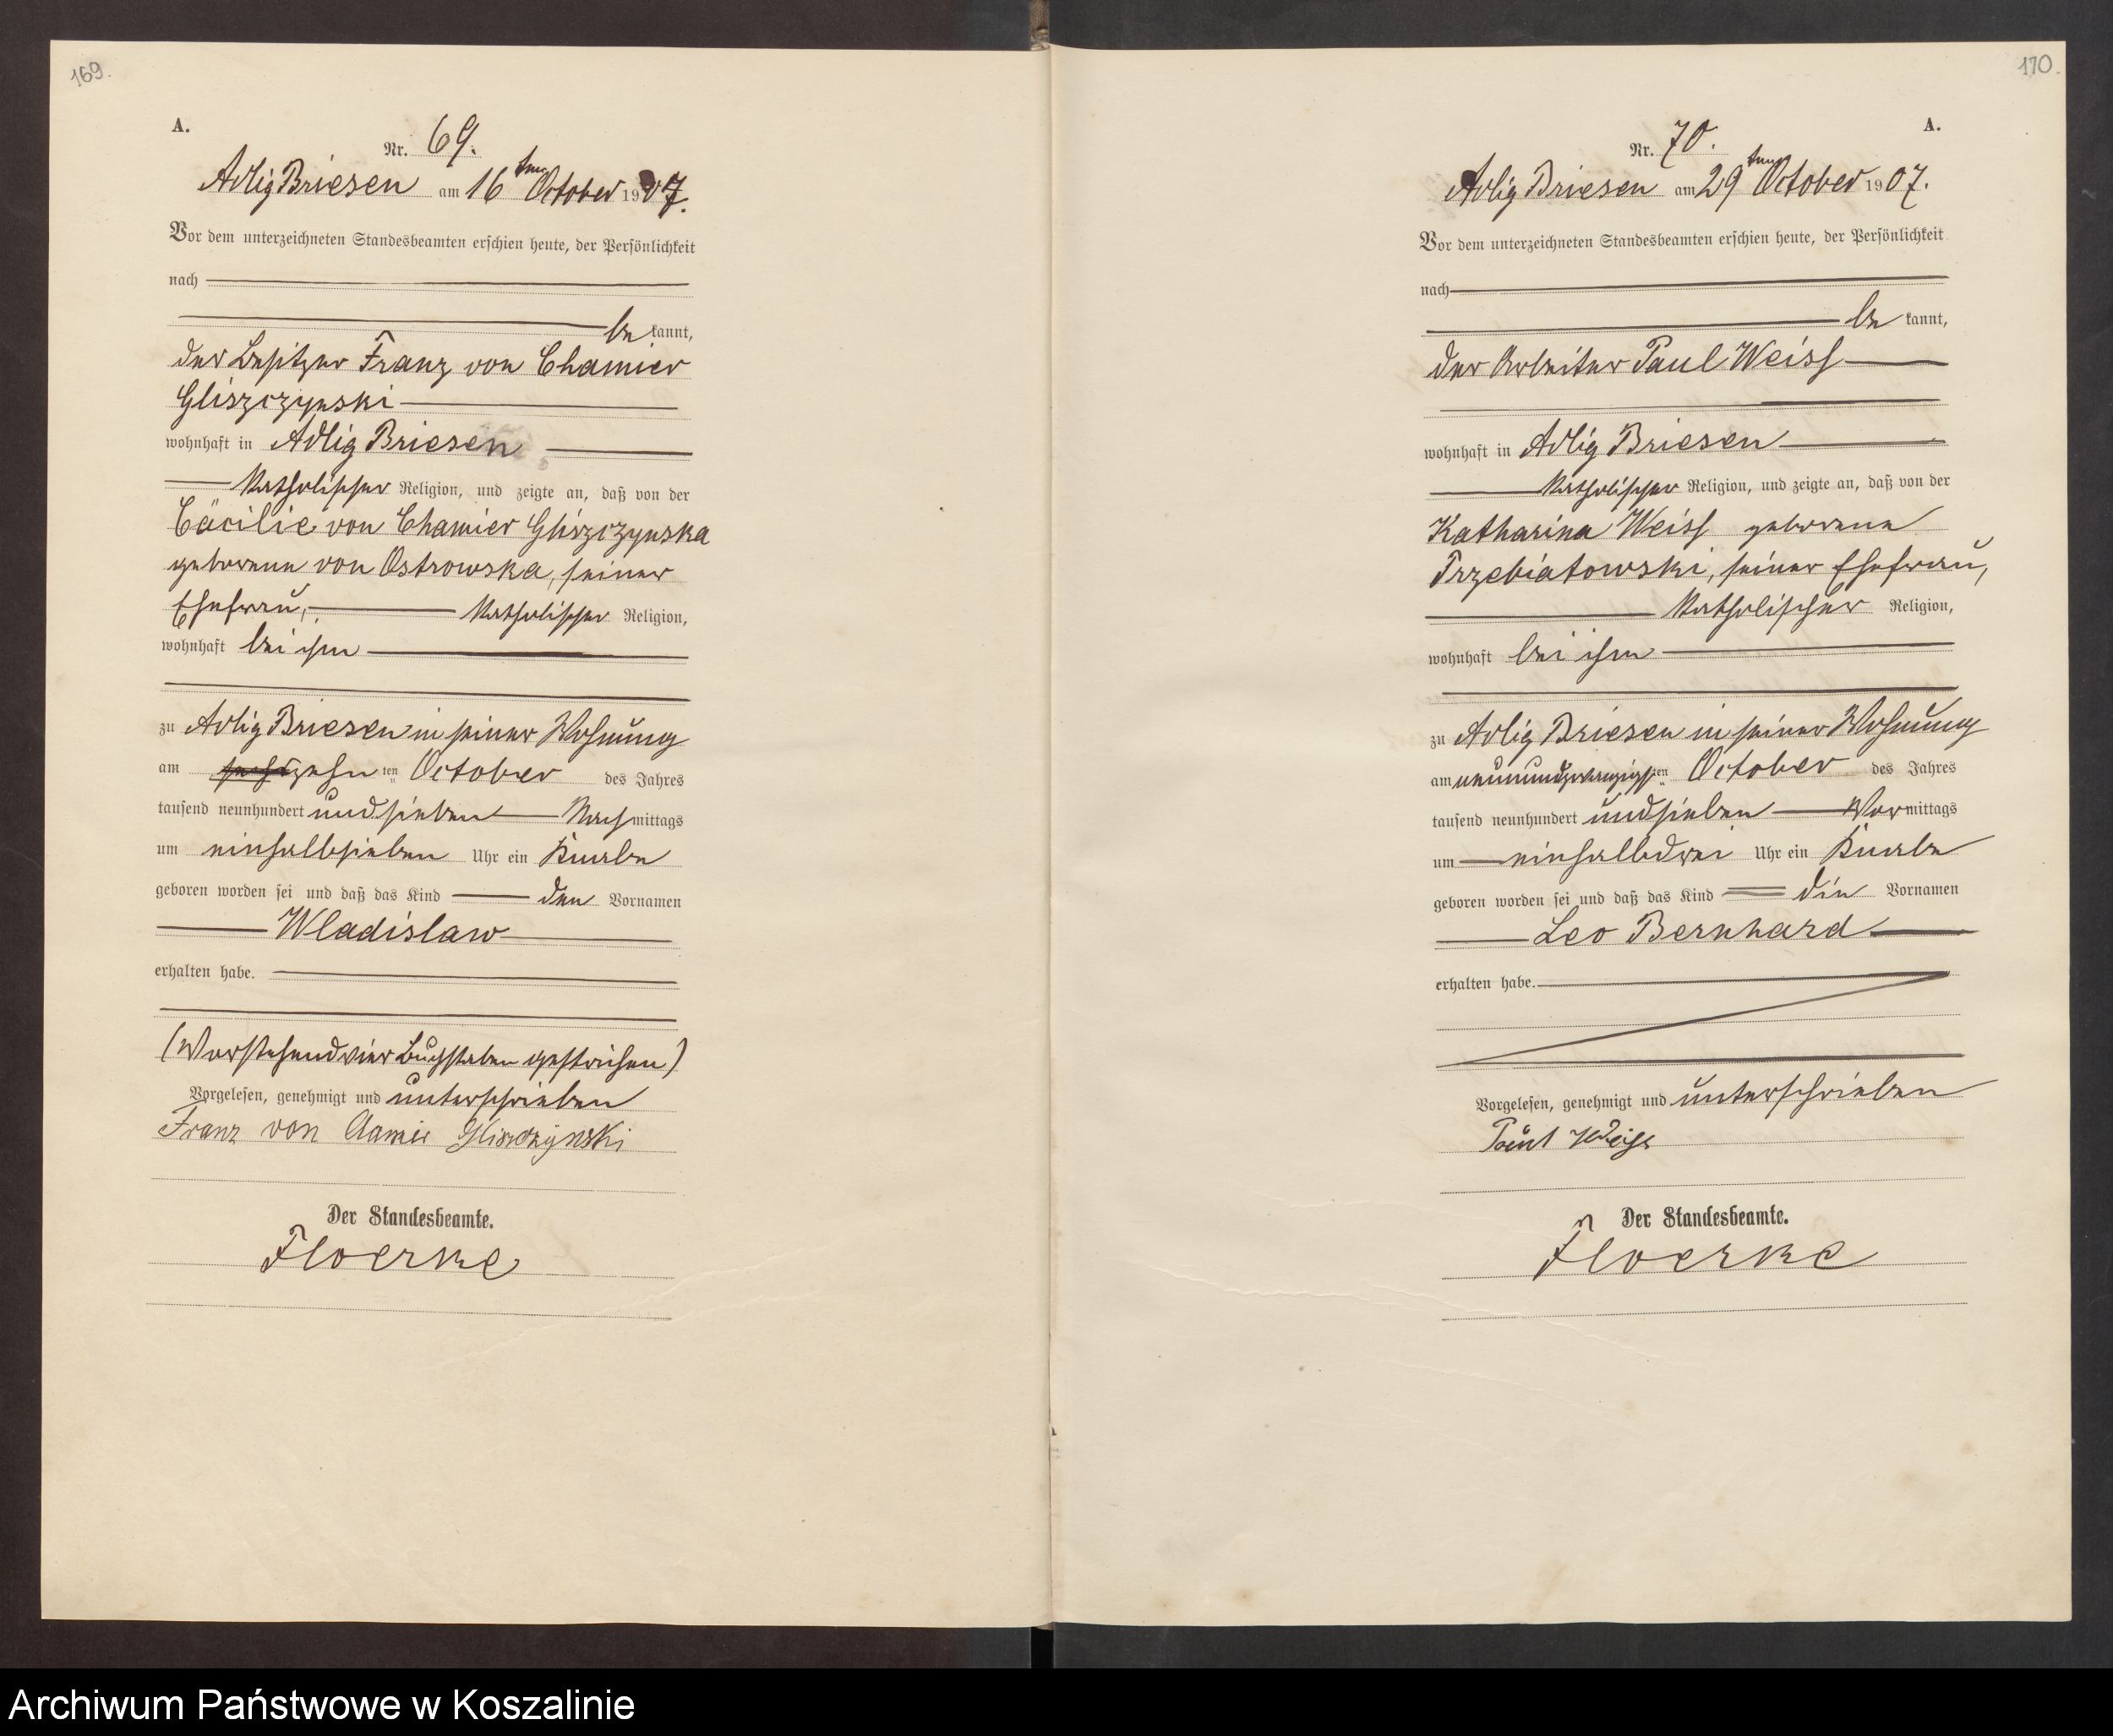 169.
A.
Nr. 69.
Adlig Briesen am 16ten October 1907.
Vor dem unterzeichneten Standesbeamten erschien heute, der Persönlichkeit
nach
bekannt,
der Besitzer Franz von Chamier
Gliszczynski
wohnhaft in Adlig Briesen
Katholischer Religion, und zeigte an, daß von der
Cäcilie von Chamier Gliszczynska
geborene von Ostrowska, seiner
Ehefrau, Katholischer Religion,
wohnhaft bei ihm
zu Adlig Briesen in seiner Wohnung
am sechszehnten October des Jahres
tausend neunhundert und sieben Nachmittags
um einhalbsieben Uhr ein Knabe
geboren worden sei und daß das Kind den Vornamen
Wladislaw
erhalten habe.
(Vorstehend vier Buchstaben gestrichen)
Vorgelesen, genehmigt und unterschrieben
Franz von Gliszczynski
Der Standesbeamte.
Floerke
170.
A.
Nr. 70.
Adlig Briesen am 29ten October 1907.
Vor dem unterzeichneten Standesbeamten erschien heute, der Persönlichkeit
nach
bekannt,
der Arbeiter Paul Weiss
wohnhaft in Adlig Briesen
Katholischer Religion, und zeigte an, daß von der
Katharina Weiss geborene
Przebiatowski, seiner Ehefrau,
Katholischer Religion,
wohnhaft bei ihm
zu Adlig Briesen in seiner Wohnung
am neunundzwanzigsten October des Jahres
tausend neunhundert und sieben Vormittags
um einhalbdrei Uhr ein Knabe
geboren worden sei und daß das Kind die Vornamen
Leo Bernhard
erhalten habe.
Vorgelesen, genehmigt und unterschrieben
Paul Weiss
Der Standesbeamte.
Floerke
Archiwum Państwowe w Koszalinie